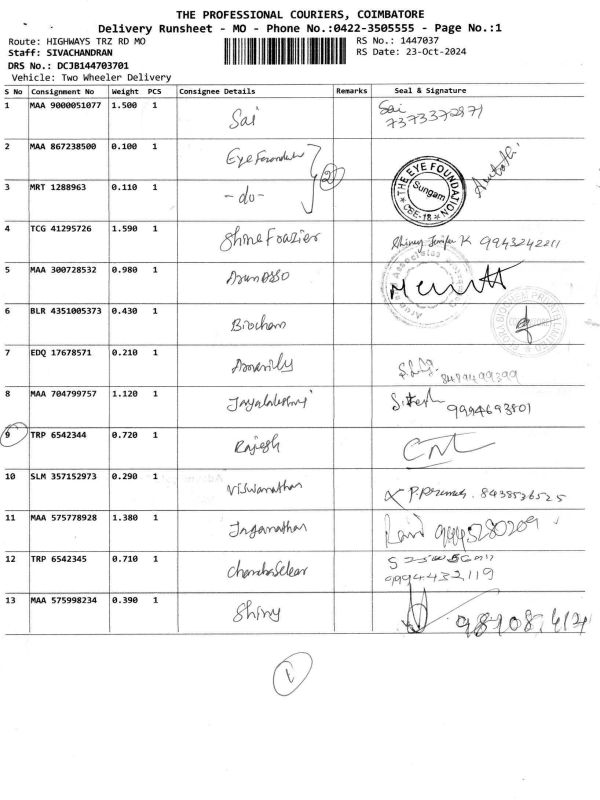 THE PROFESSIONAL COURIERS, COIMBATORE
Delivery Runsheet - MO - Phone No.:0422-3505555 - Page No.:1
Route: HIGHWAYS TRZ RD MO RS No.: 1447037
Staff: SIVACHANDRAN RS Date: 23-Oct-2024
DRS No.: DCJB144703701
Vehicle: Two Wheeler Delivery
S No Consignment No Weight PCS Consignee Details Remarks Seal & Signature
1 MAA 9000051077 1.500 1 Sai Sai
7373372971
2 MAA 867238500 0.100 1 Eye Foundation
(2) THE EYE FOUNDATION Sungam CBE-18
3 MRT 1288963 0.110 1 -do-
4 TCG 41295726 1.590 1 Shine Foazier K 9943242211
5 MAA 300728532 0.980 1
6 BLR 4351005373 0.430 1 Biocham
7 EDQ 17678571 0.210 1
8489499399
8 MAA 704799757 1.120 1 Jayalakshmi 9994693801
9 TRP 6542344 0.720 1 Rajesh
10 SLM 357152973 0.290 1 Viswanathan 8438536525
11 MAA 575778928 1.380 1 Jaganathan 9945280209
12 TRP 6542345 0.710 1
9994432119
13 MAA 575998234 0.390 1 Shiny
1